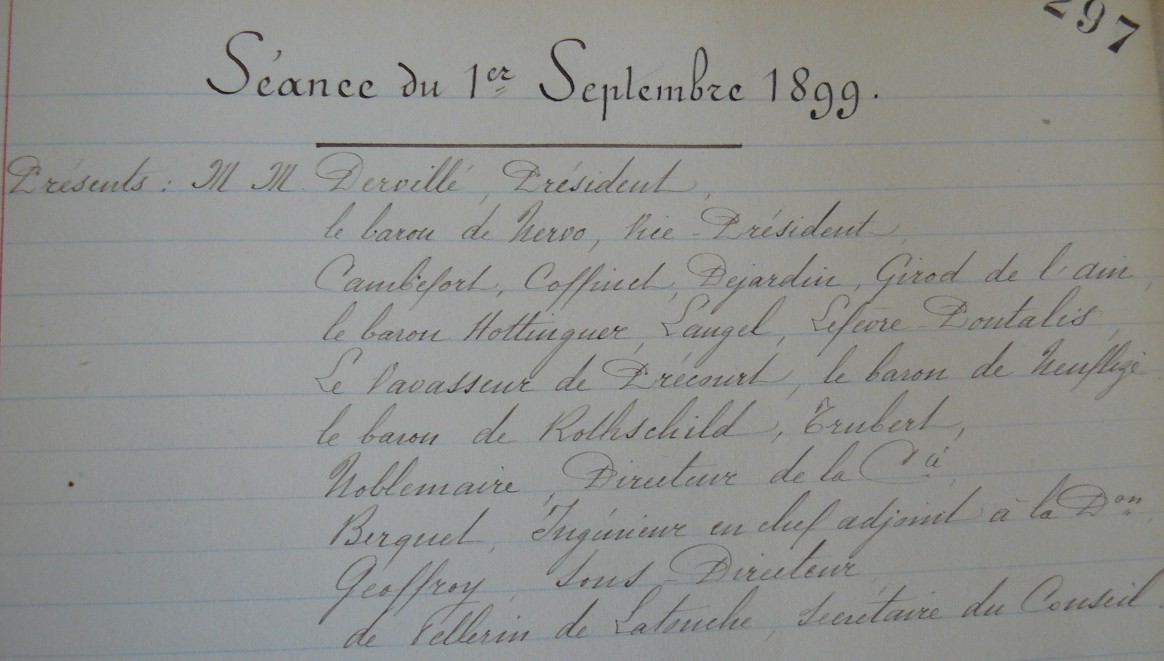 297
Séance du 1er Septembre 1899.
Présents : M M. Dervillé, Président,
le baron de Nervo, Vice-Président,
Cambefort, Coffinet, Dejardin, Girod de l'ain,
le baron Hottinguer, Laugel, Lefèvre-Pontalis,
Le Vavasseur de Précourt, le baron de Neuflize
le baron de Rothschild, Trubert,
Noblemaire, Directeur de la Cie,
Berquet, Ingénieur en chef adjoint à la Don,
Geoffroy, Sous-Directeur,
de Pellerin de Latouche, Secrétaire du Conseil.